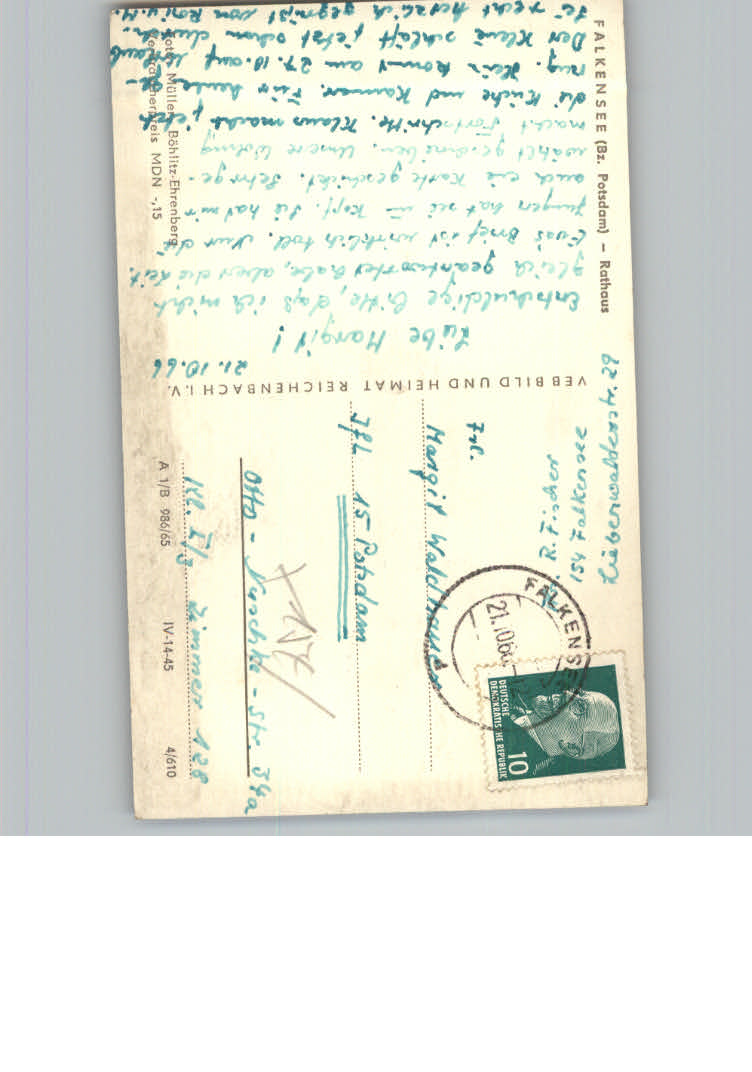 FALKENSEE (Bz. Potsdam) – Rathaus
21.10.66
Liebe Margit!
Entschuldige bitte, daß ich nicht
gleich geantwortet habe, aber die Zeit.
Euer Brief ist wirklich toll. Nur die
Jungen hat sie im Kopf. Sie hat mir
auch eine Karte geschickt. Sehr ge-
wählt geschrieben. Unsere Wohnung
macht Fortschritte. Klaus macht jetzt
die Küche und Kammer. Für heute ge-
nug. Hein kommt am 27.10. auf Urlaub
Der Kleine schläft jetzt schon durch.
Sei recht herzlich gegrüßt von
Foto: Müller, Böhlitz-Ehrenberg
Verbraucherpreis MDN -,15
VEB BILD UND HEIMAT REICHENBACH I. V.
A 1/B 986/65 IV-14-45 4/610
R. Fischer
154 Falkensee
Frl.
Margit
IfL 15 Potsdam
Otto-Nuschke-Str. 34a
Kl. Zimmer 128
FALKENSEE
21.10.66
DEUTSCHE
DEMOKRATISCHE REPUBLIK
10